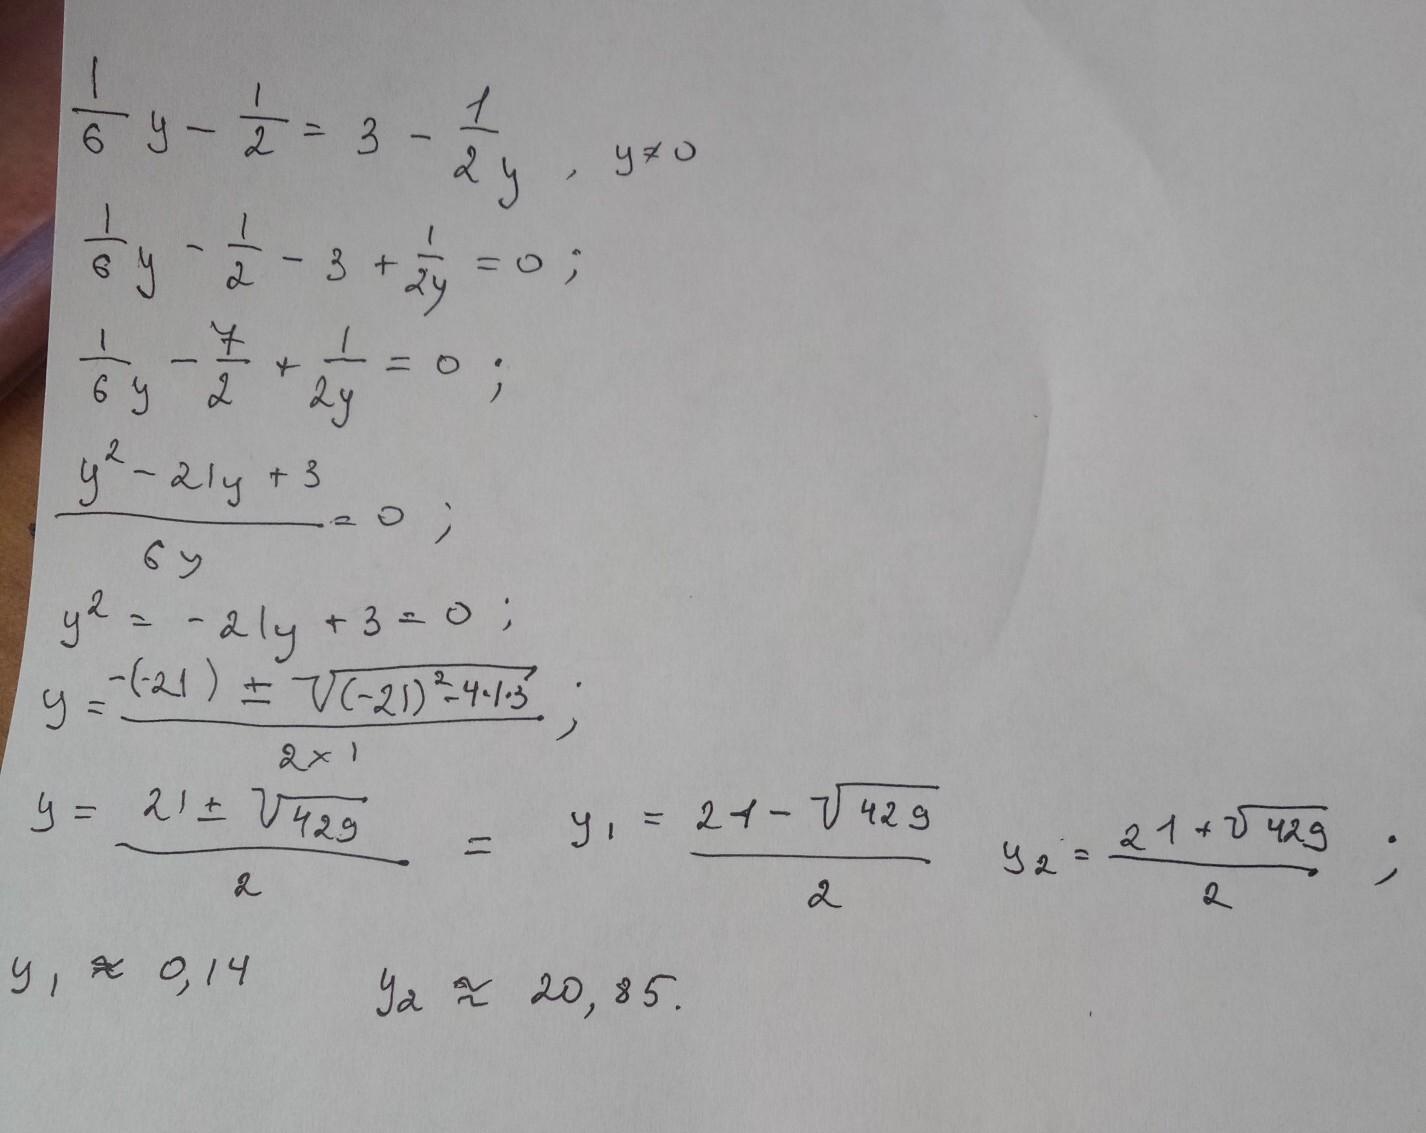 1/6 y - 1/2 = 3 - 1/2y , y≠0
1/6 y - 1/2 - 3 + 1/2y = 0 ;
1/6 y - 7/2 + 1/2y = 0 ;
(y² - 21y + 3)/6y = 0 ;
y² = -21y + 3 = 0 ;
y = (-(-21) ± √((-21)² - 4·1·3))/(2×1) ;
y = (21 ± √429)/2 = y₁ = (21 - √429)/2 y₂ = (21 + √429)/2 ;
y₁ ≈ 0,14 y₂ ≈ 20,85.